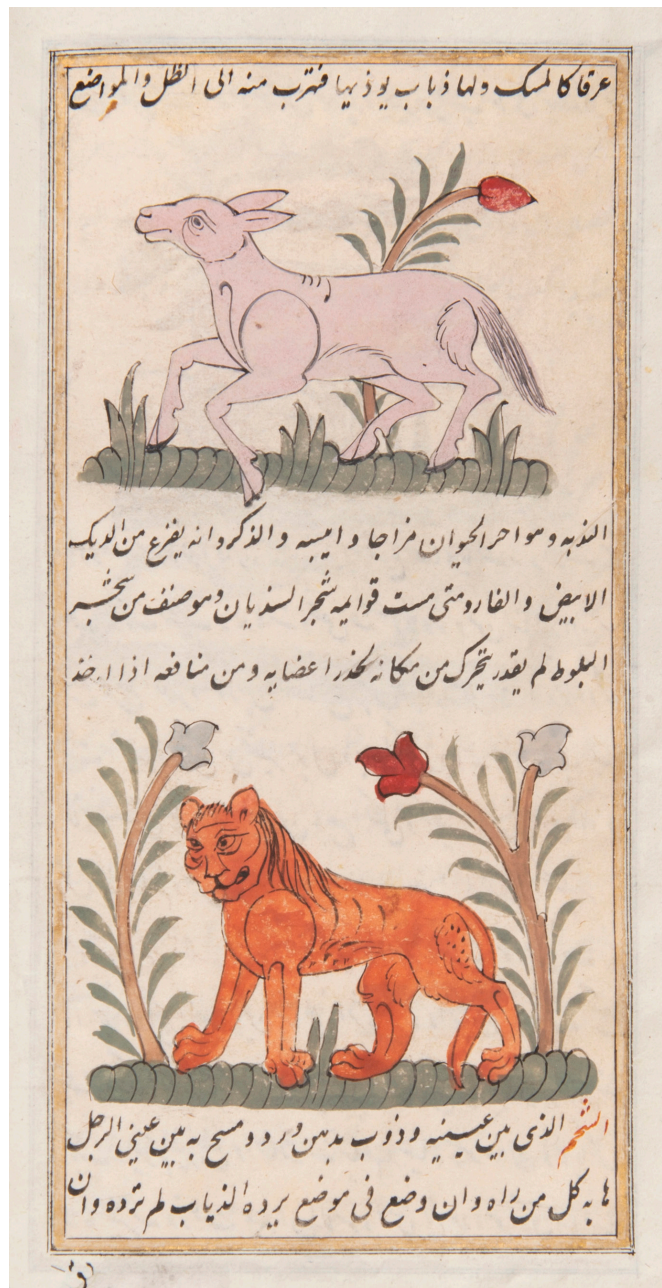 عرقا كالمسك ولها ذباب يوذيها فتهرب منه الى الظل والمواضع
النديه وهو احر الحيوان مزاجا وايبسه والذكر وانه يفزع من الديك
الابيض والفار ومتى مست قوايمه شجر السنديان وهو صنف من شجر
البلوط لم يقدر يتحرك من مكانه لخدر اعضايه ومن منافعه اذا اخذ
الشحم الذى بين عينيه وذوب بدهن ورد ومسح به بين عينى الرجل
هابه كل من راه وان وضع فى موضع يرده الذياب لم ترده وان